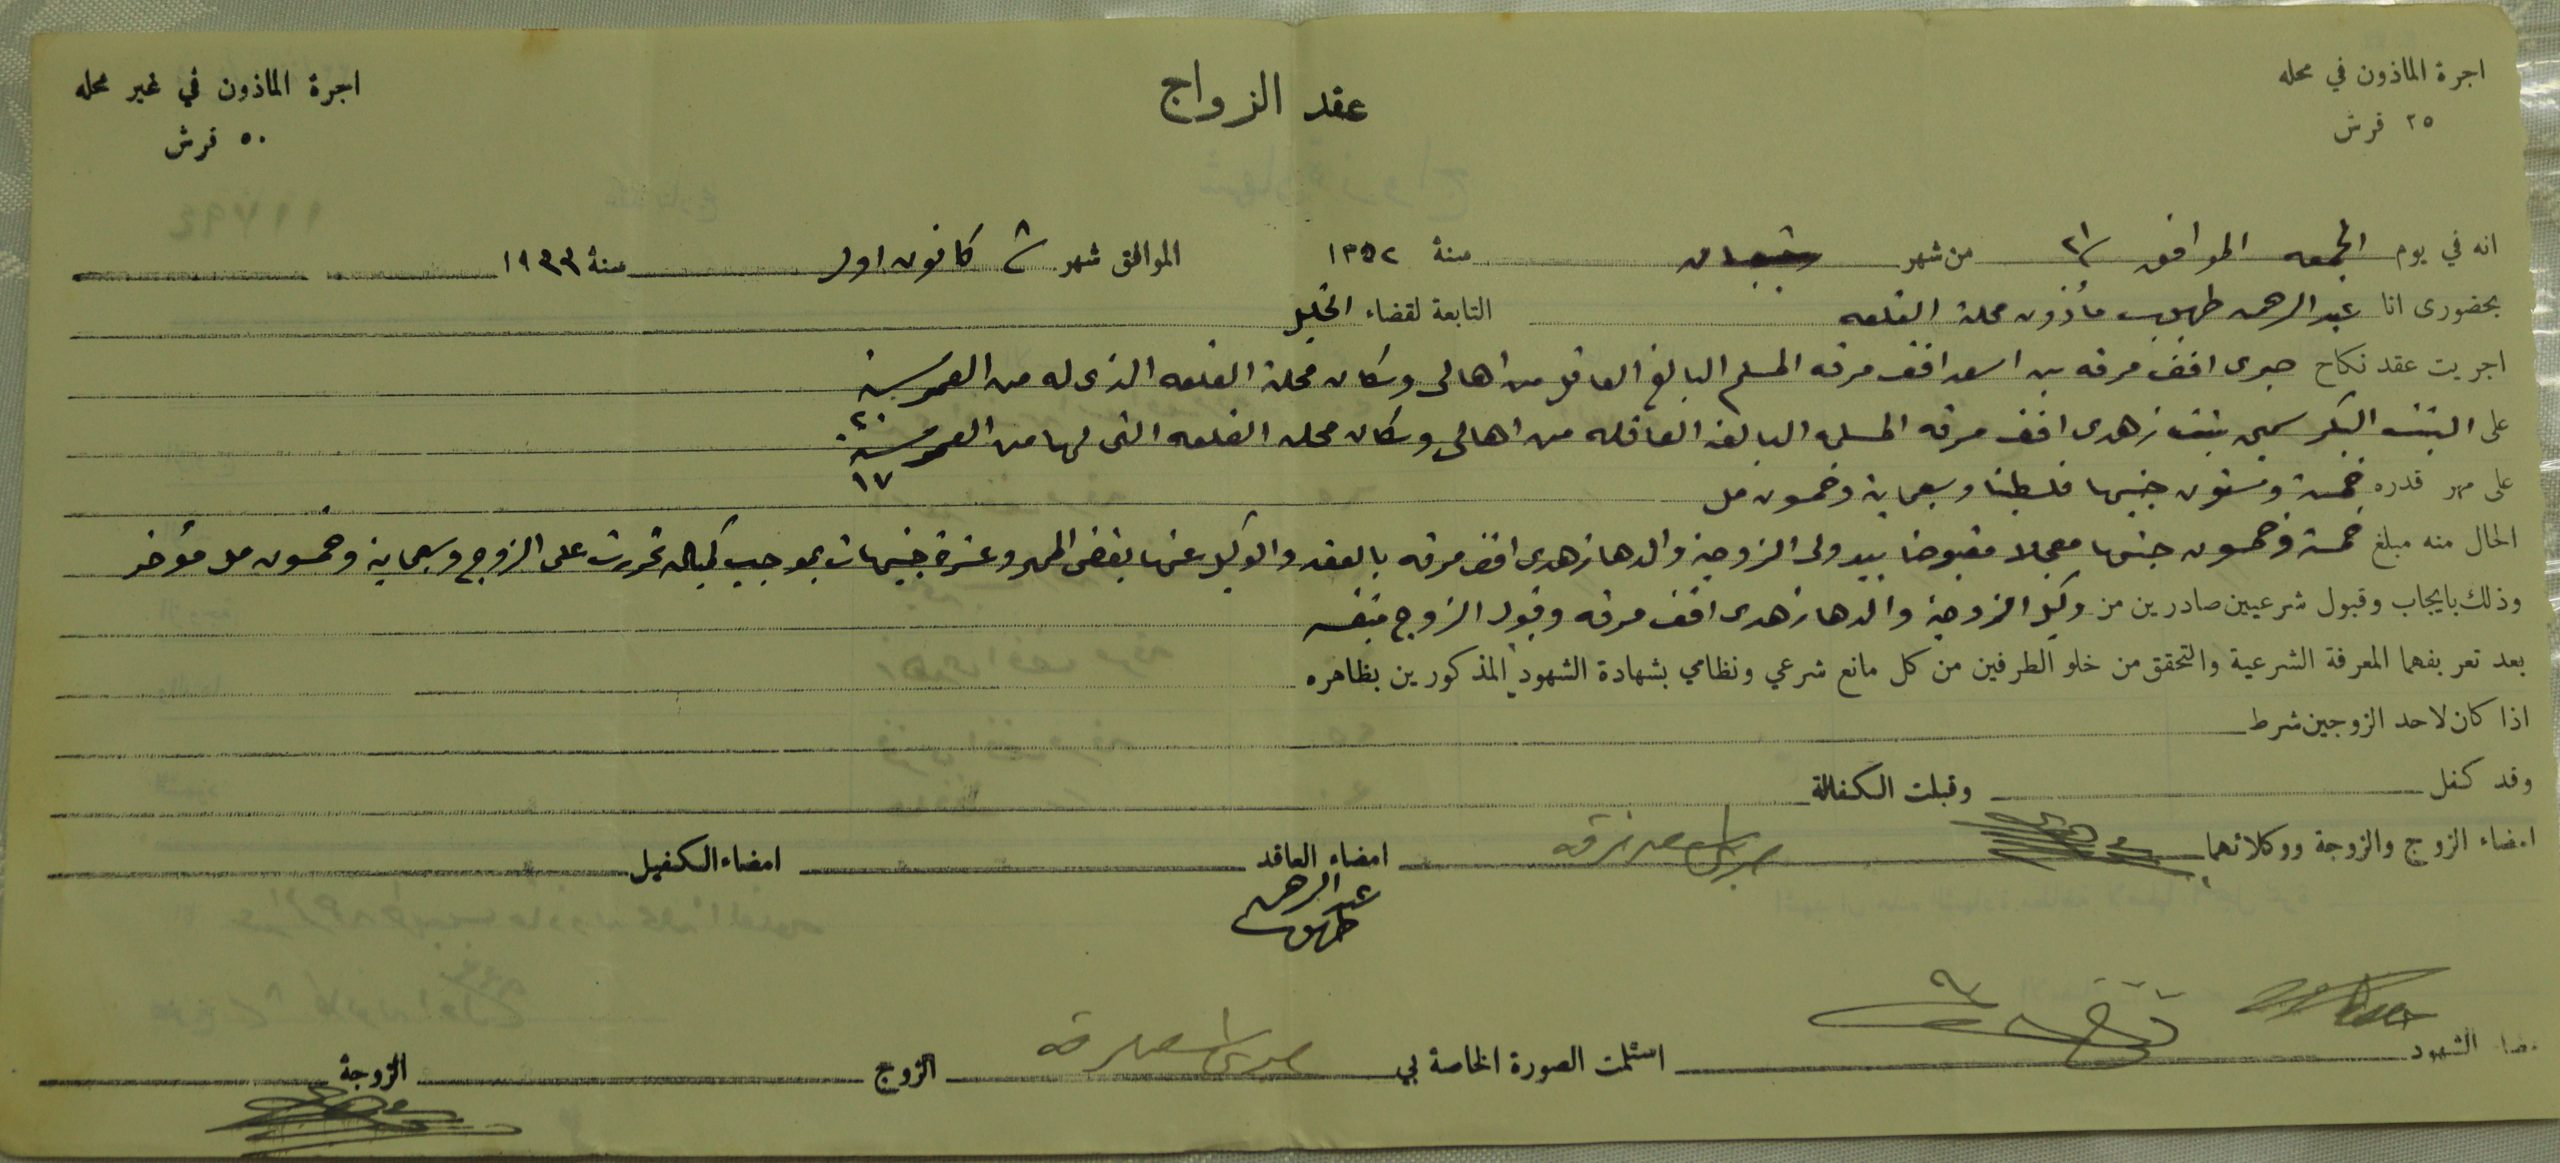 اجرة المأذون في محله
٢٥ قرش
عقد الزواج
اجرة المأذون في غير محله
٥٠ قرش
انه في يوم الجمعه الموافق ٢١ من شهر شعبان سنة ١٣٥٢ الموافق شهر ٨ كانون اول سنة ١٩٣٣
بحضوري انا عبد الرحمن طهبوب مأذون محلة القلعه التابعة لقضاء الخليل
اجريت عقد نكاح صبري افندي مرقه بن اسعد افندي مرقه المسلم البالغ العاقل من اهالي وسكان محلة القلعه الذي له من العمر سنة ٢٠
على البنت البكر بنت زهدي افندي مرقه المسلمه البالغه العاقله من اهالي وسكان محلة القلعه التي لها من العمر سنة ١٧
على مهر قدره خمسة وستون جنيها فلسطينيا وسبعماية وخمسون مل
الحال منه مبلغ خمسة وخمسون جنيها معجلا مقبوضا بيد ولي الزوجة والدها زهدي افندي مرقه بالعقد والوكيل عنها بقبض المهر وعشرة جنيهات بموجب كمبياله تحررت على الزوج وسبعماية وخمسون مل مؤخر
وذلك بايجاب وقبول شرعيين صادرين من وكيل الزوجة والدها زهدي افندي مرقه وقبول الزوج بنفسه
بعد تعريفهما المعرفة الشرعية والتحقق من خلو الطرفين من كل مانع شرعي ونظامي بشهادة الشهود المذكورين بظاهره
اذا كان لاحد الزوجين شرط
وقد كفل وقبلت الكفالة
امضاء الزوج والزوجة ووكلائهما صبري اسعد مرقه امضاء العاقد امضاء الكفيل
عبد الرحمن
طهبوب
امضاء الشهود استلمت الصورة الخاصة بي صبري اسعد مرقه الزوج الزوجة